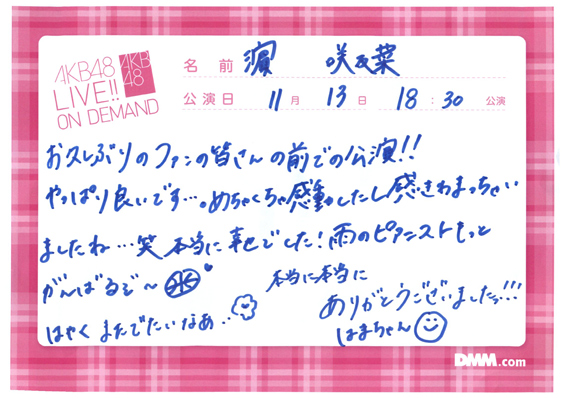 AKB48
LIVE!!
ON DEMAND
AKB
48
名前 濵 咲友菜
公演日 11月 13日 18:30 公演
お久しぶりのファンの皆さんの前での公演!!
やっぱり良いです…。めちゃくちゃ感動したし感きわまっちゃい
ましたね…笑 本当に幸せでした!雨のピアニストもっと
がんばるぞ〜
本当に本当に
ありがとうございましたっ!!!
はやく またでたいなあ…
はまちゃん
DMM.com